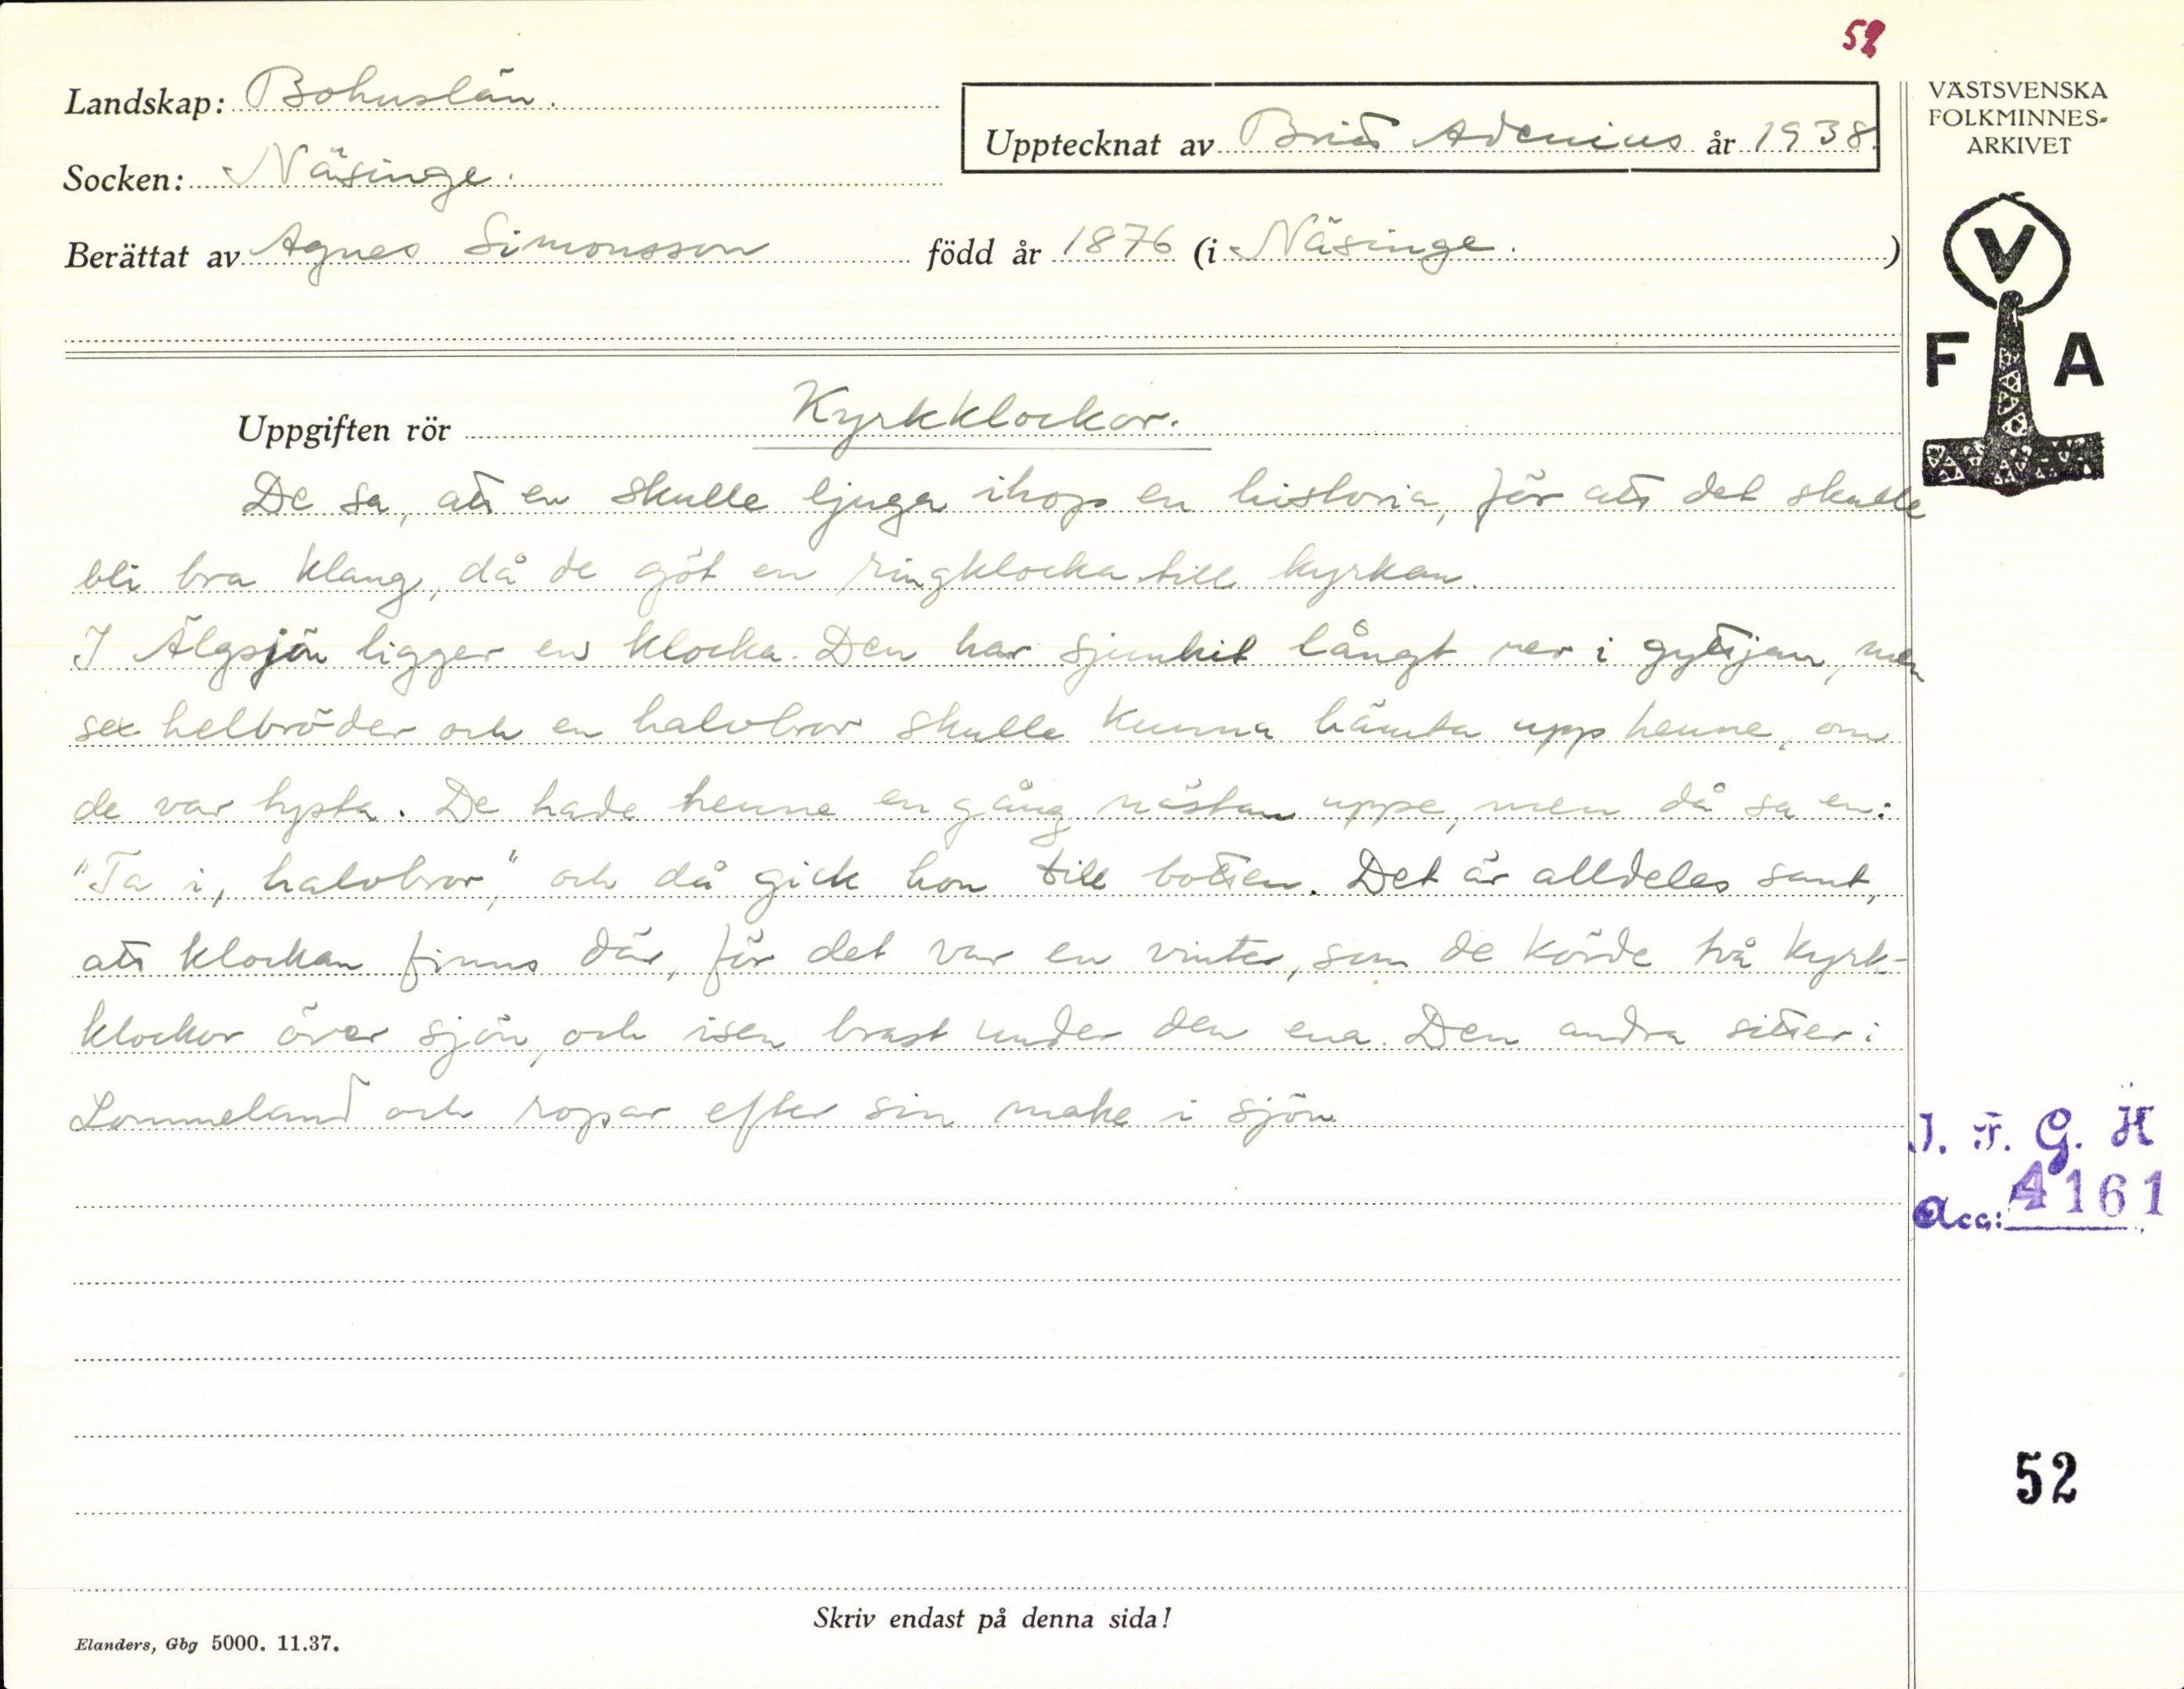 52
Landskap: Bohuslän.
Socken: Näsinge.
Berättat av Agnes Simonsson född år 1876 (i Näsinge. )
Upptecknat av Britt Adenius år 1938.
VÄSTSVENSKA
FOLKMINNES-
ARKIVET
V
F A
Uppgiften rör Kyrkklockor.
De sa, att en skulle ljuga ihop en historia, för att det skulle
bli bra klang, då de göt en ringklocka till kyrkan.
I Älgsjön ligger en klocka. Den har sjunkit långt ner i gyttjan, men
sex helbröder och en halvbror skulle kunna hämta upp henne, om
de var tysta. De hade henne en gång nästan uppe, men då sa en:
"Ta i, halvbror," och då gick hon till botten. Det är alldeles sant,
att klockan finns där, för det var en vinter, som de körde två kyrk-
klockor över sjön, och isen brast under den ena. Den andra sitter i
Lommeland och ropar efter sin make i sjön.
I. F. G. H
Acc: 4161
52
Skriv endast på denna sida!
Elanders, Gbg 5000. 11.37.